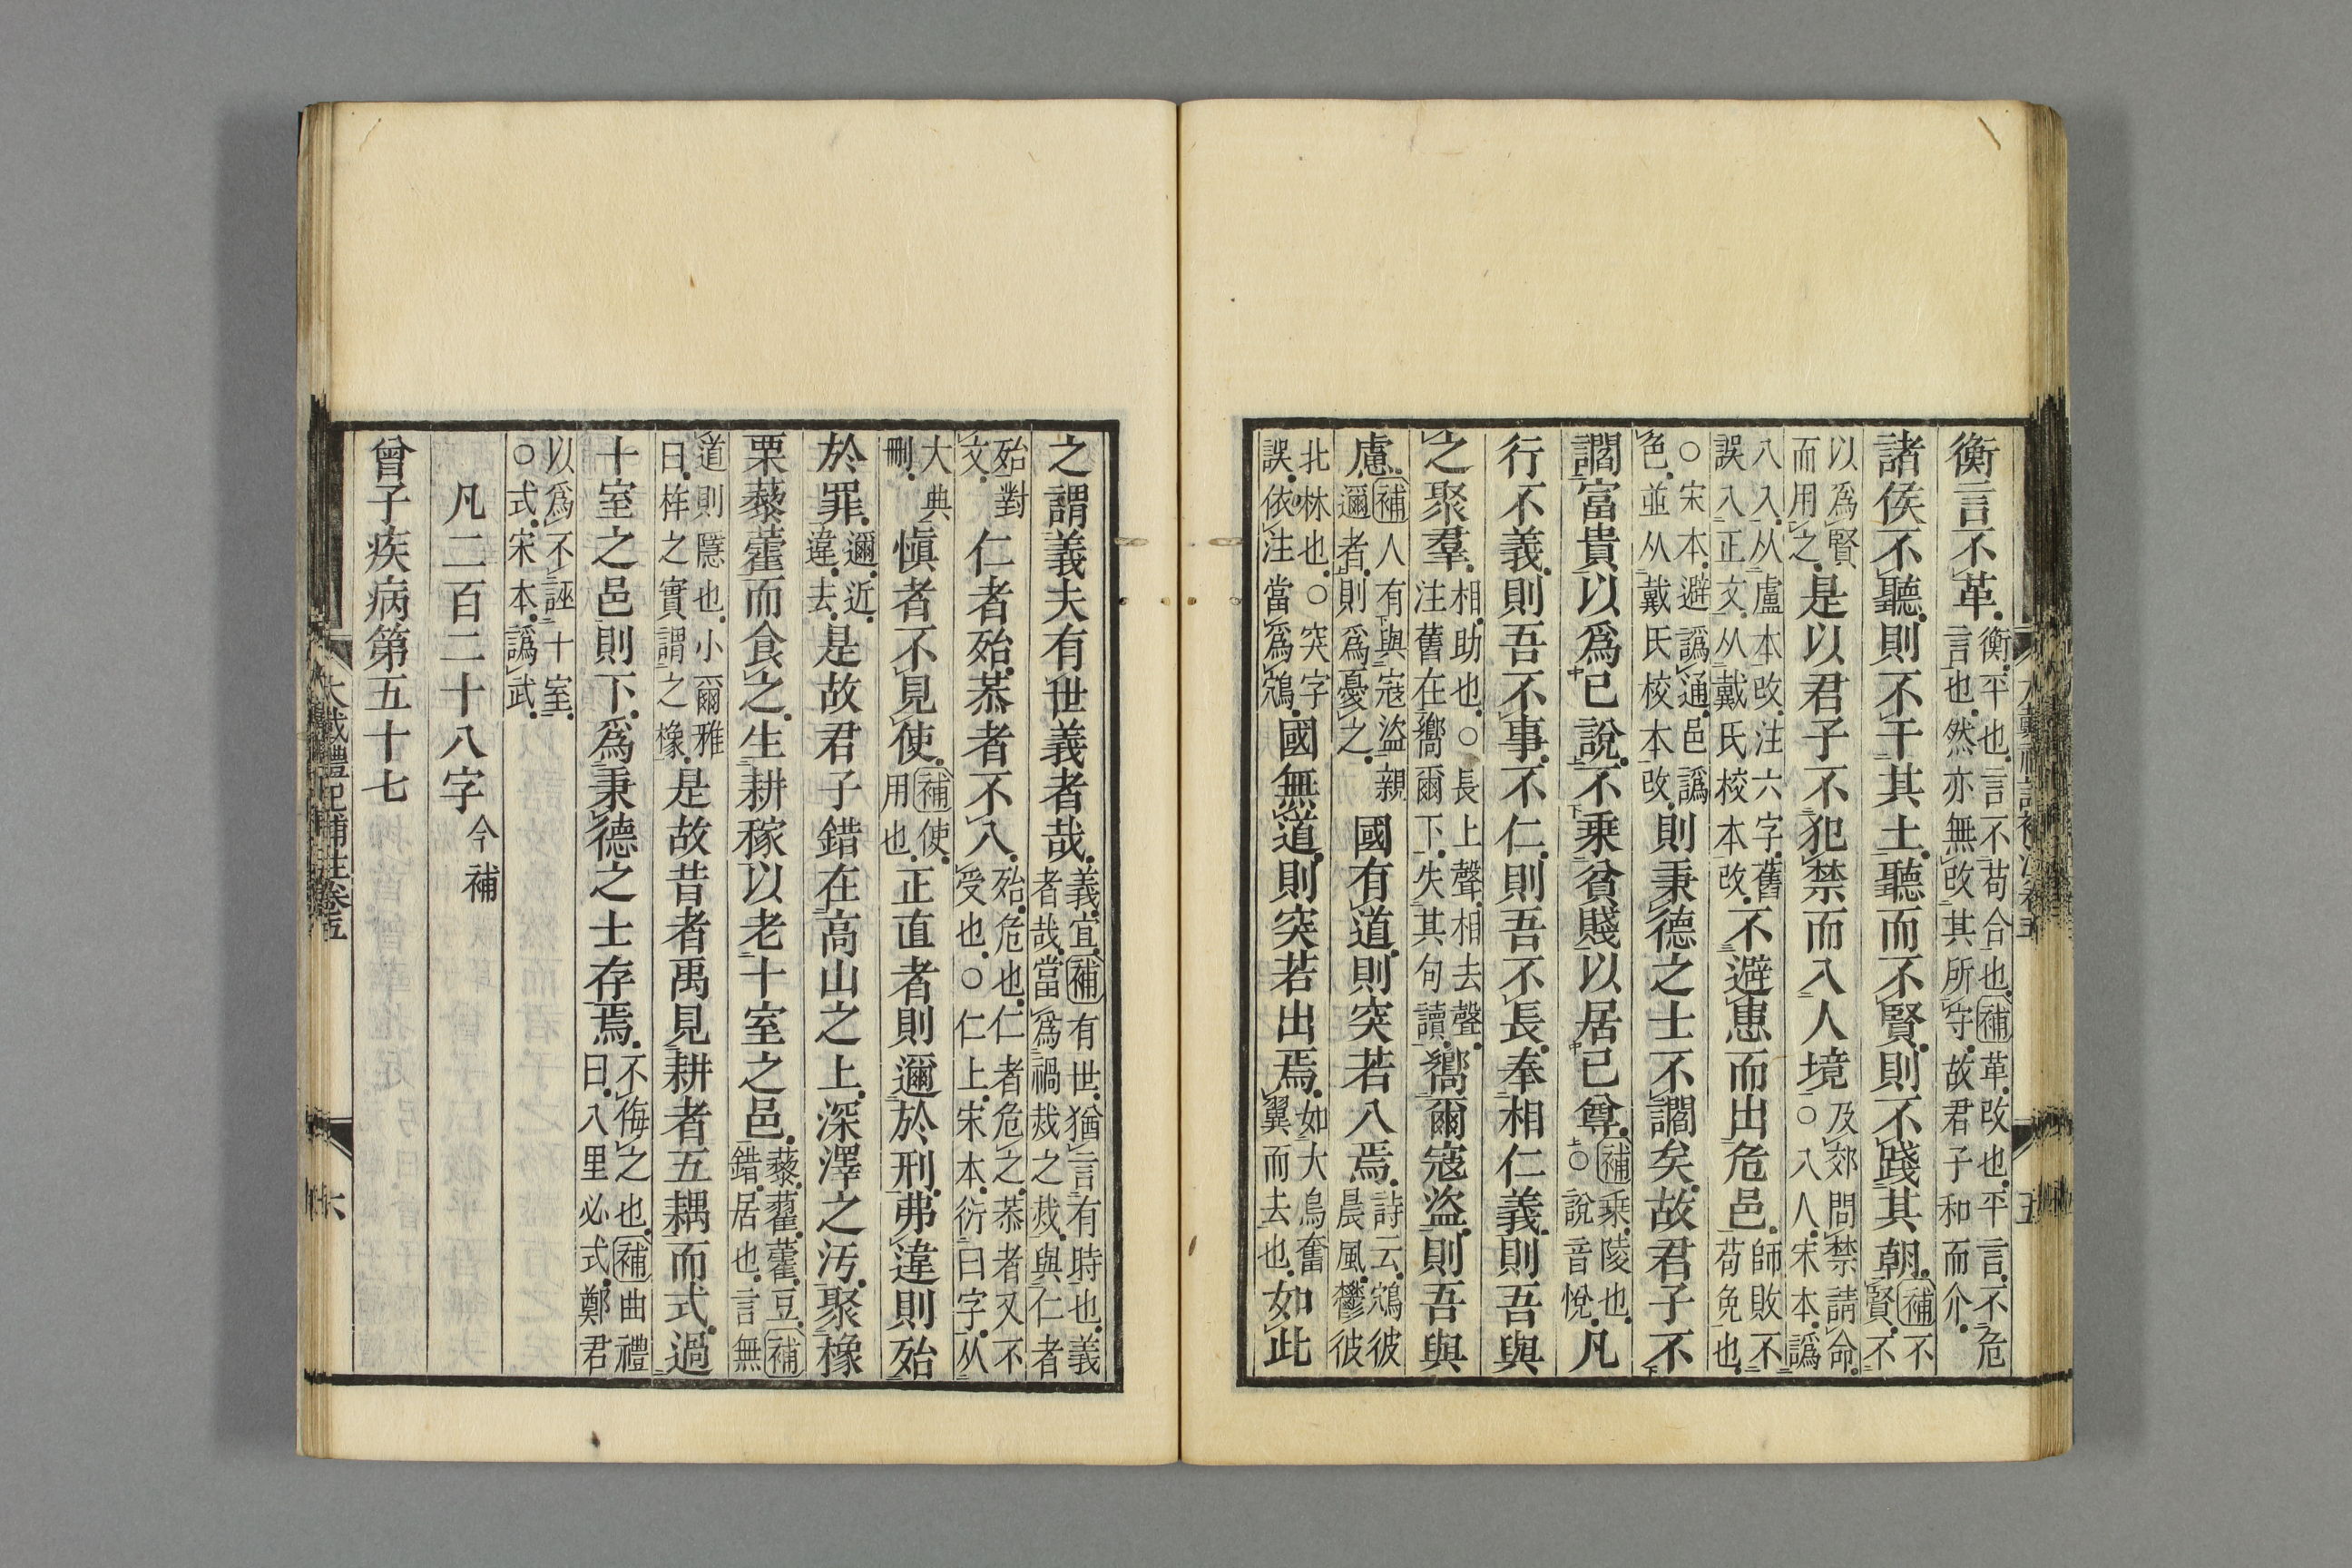 衡言不革衡平也言不苟合也補革改也平言不危言也然亦無改其所守故君子和而介
諸侯不聽則不干其土聽而不賢則不踐其朝補不賢不
以爲賢而用之是以君子不犯禁而入人境及郊問禁請命○入人宋本譌
八入从盧本改注六字舊誤入正文从戴氏校本改不避患而出危邑師敗不苟免也
○宋本避譌通邑譌色並从戴氏校本改則秉德之士不讇矣故君子不
讇富貴以爲己說不乘貧賤以居己尊補乘陵也○說音悅凡
行不義則吾不事不仁則吾不長奉相仁義則吾與
之聚羣相助也○長上聲相去聲注舊在嚮爾下失其句讀嚮爾寇盜則吾與
慮補人有與寇盜親邇者則爲憂之國有道則突若入焉詩云鴥彼晨風鬱彼
北林也○突字誤依注當爲鴥國無道則突若出焉如大鳥奮翼而去也如此
之謂義夫有世義者哉義宜補有世猶言有時也義者哉當爲禍烖之烖與仁者
殆對文仁者殆恭者不入殆危也仁者危之恭者又不受也○仁上宋本衍曰字从
大典刪慎者不見使補使用也正直者則邇於刑弗違則殆
於罪邇近違去是故君子錯在高山之上深澤之污聚橡
栗藜藿而食之生耕稼以老十室之邑藜藋藿豆補錯居也言無
道則隱也小爾雅曰柞之實謂之橡是故昔者禹見耕者五耦而式過
十室之邑則下爲秉德之士存焉不侮之也補曲禮曰入里必式鄭君
以爲不誣十室○式宋本譌武
凡二百二十八字今補
曾子疾病第五十七
大戴禮記補注卷五
六
大戴禮記補注卷五
五